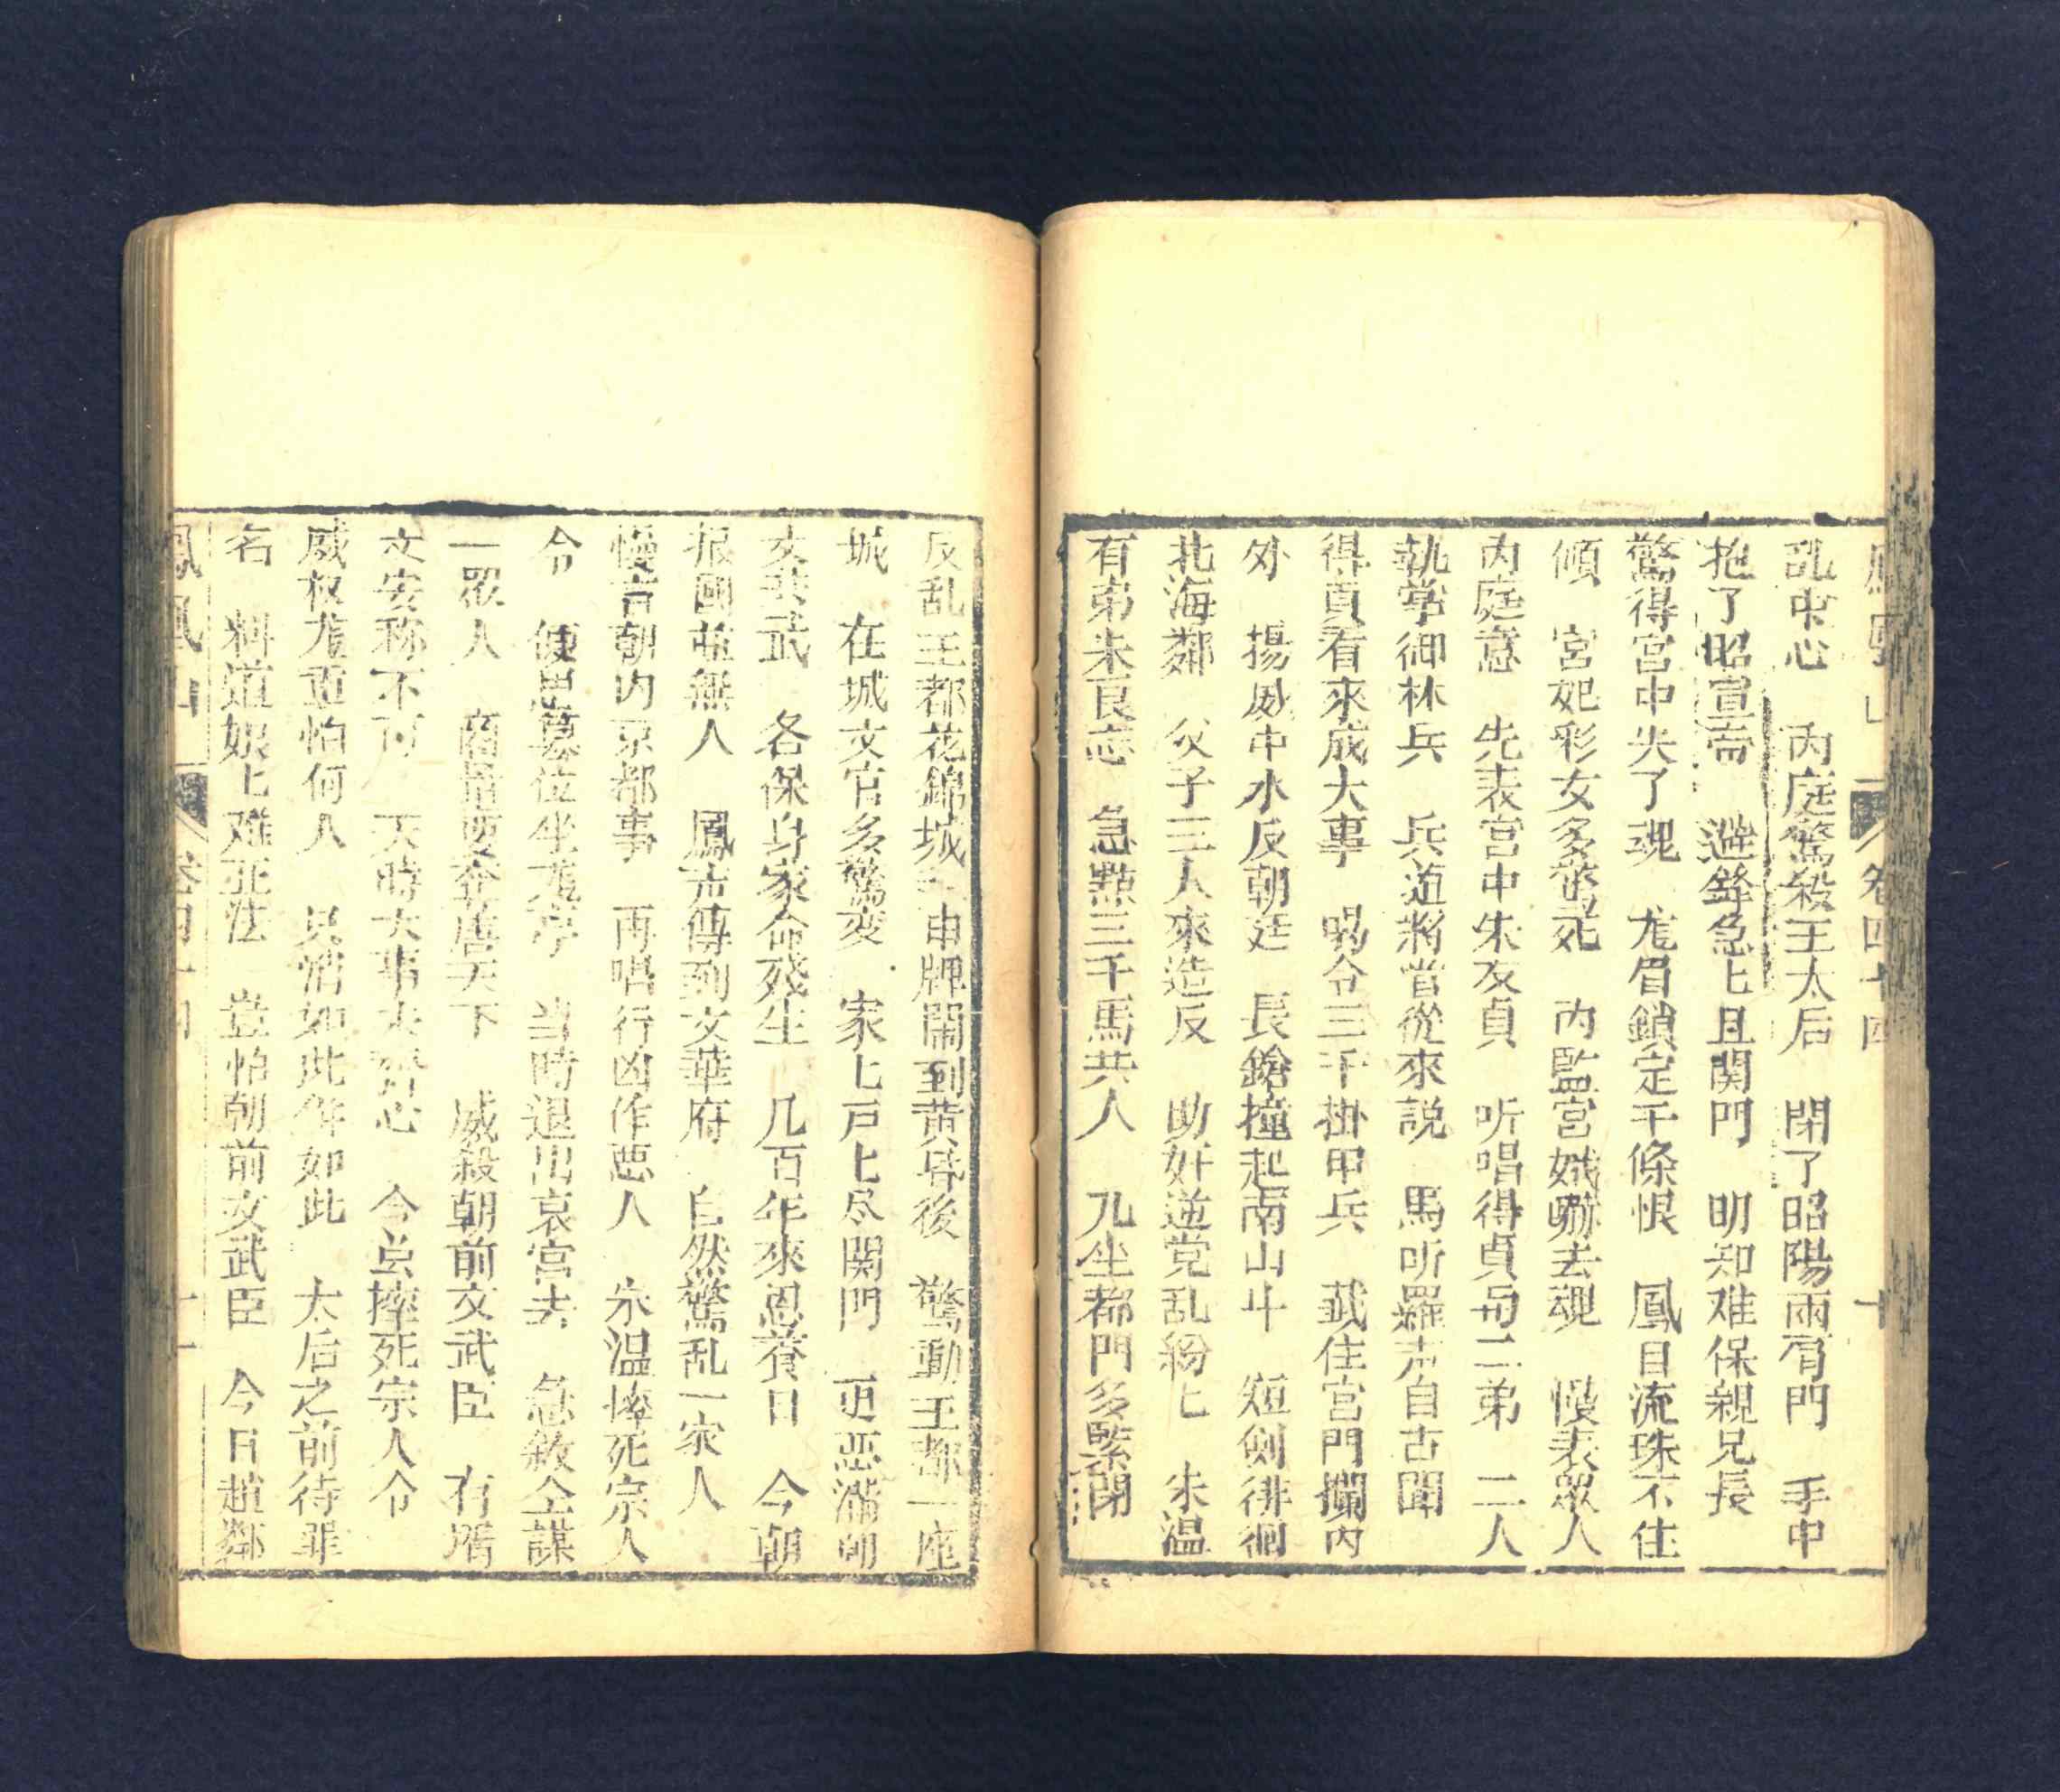 卷四十四 十
乱中心 内庭驚殺王太后 閉了昭陽兩肩門 手中
抱了昭宣帝 避鋒急匕且関門 明知难保親兄長
驚得宮中失了魂 尨眉鎖定千條恨 鳳目流珠不住
傾 宮妃彩女多驚死 内監宮娥嚇去魂 慢表眾人
内庭意 先表宮中朱友貞 听唱得貞冄二弟 二人
執掌御林兵 兵道將當從來説 馬听羅声自古聞
得貞看來成大事 喝令三千掛甲兵 截住宮門攔内
外 揚威中水反朝廷 長鎗撞起南山斗 短劍徘徊
北海鄰 父子三人來造反 助奸逆党乱紛匕 朱温
有弟朱良志 急點三千馬共人 九坐都門多緊閉
反乱王都花錦城 申牌閙到黄昏後 驚動王都一座
城 在城文官多驚变 家匕戸匕尽関門 更恶滿朝
文共武 各保身家命殘生 几百年來恩養日 今朝
报國並無人 鳳声傳到文華府 自然驚乱一家人
慢言朝内京都事 再唱行凶作悪人 朱温摔死宗人
令 便思墓位坐尨亭 当時退出哀宮去 急敘仝謀
一眾人 商量要奪唐天下 威殺朝前文武臣 有
文安称不可 天時大事未齐心 今虽摔死宗人令
威权尨重怕何人 只消如此 如此 太后之前待罪
名 料道娘匕难正法 豈怕朝前文武臣 今日趙鄰
鳳凰山 卷四十四 十一